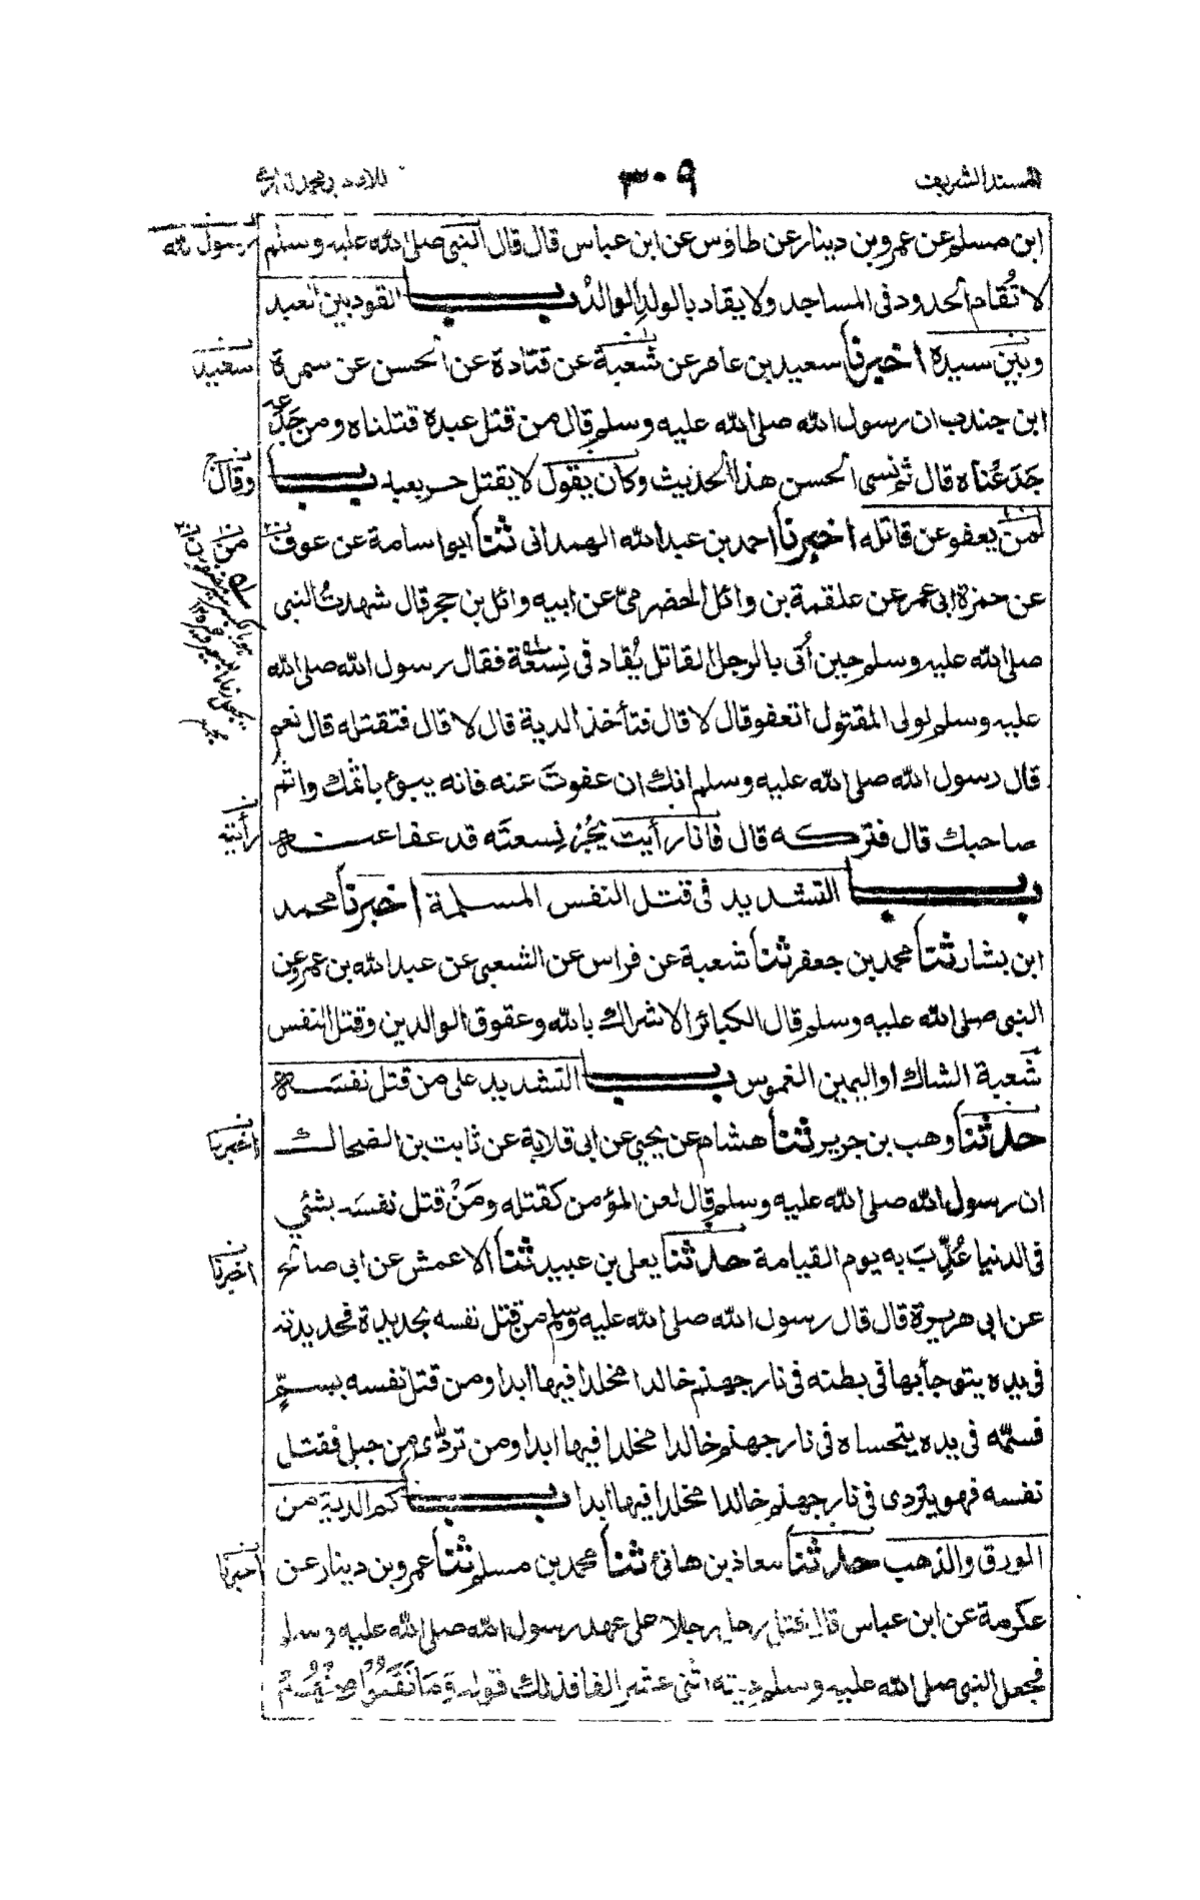 المسند الشريف
٣٠٩
ابن مسلم عن عمرو بن دينار عن طاؤس عن ابن عباس قال قال النبي صلى الله عليه وسلم
رسول الله
لا تُقام الحدود في المساجد ولا يقاد بالولدِ الوالدُ باب القود بين العبد
وبين سيده اخبرنا سعيد بن عامر عن شعبة عن قتادة عن الحسن عن سمرة
سعيد
ابن جندب ان رسول الله صلى الله عليه وسلم قال من قتل عبده قتلناه ومن جَدَعه
جَدَعْناه قال ثم نسي الحسن هذا الحديث وكان يقول لا يقتل حر بعبد باب
وقال
لمن يعفو عن قاتله اخبرنا احمد بن عبد الله الهمداني ثنا ابو اسامة عن عوف
من
عن حمزة ابي عمر عن علقمة بن وائل الحضرميّ عن ابيه وائل بن حجر قال شهدتُ النبي
صلى الله عليه وسلم حين أُتى بالرجل القاتل يُقاد في نِسْعَة فقال رسول الله صلى الله
عليه وسلم لولى المقتول اتعفو قال لا قال فتأخذ الدية قال لا قال فتقتله قال نعم
قال رسول الله صلى الله عليه وسلم انك ان عفوتَ عنه فانه يبوء باثمك واثم
صاحبك قال فتركه قال فانا رأيت يَجُرُّ نِسعتَه قد عفا عنه
رأيته
باب التشديد في قتل النفس المسلمة اخبرنا محمد
ابن بشار ثنا محمد بن جعفر ثنا شعبة عن فراس عن الشعبي عن عبد الله بن عمرو عن
النبي صلى الله عليه وسلم قال الكبائر الاشراك بالله وعقوق الوالدين وقتل النفس
شعبة الشاك او اليمين الغموس باب التشديد على من قتل نفسَه
حدثنا وهب بن جرير ثنا هشام عن يحيى عن ابي قلابة عن ثابت بن الضحاك
اخبرنا
ان رسول الله صلى الله عليه وسلم قال لعن المؤمن كقتله ومَنْ قتل نفسَه بشئي
في الدنيا عُذِّبَ به يوم القيامة حدثنا يعلى بن عبيد ثنا الاعمش عن ابي صالح
اخبرنا
عن ابي هريرة قال قال رسول الله صلى الله عليه وسلم من قتل نفسه بحديدة فحديدته
في يده يتوجأ بها في بطنه في نار جهنم خالدا مخلدا فيها ابدا ومن قتل نفسه بسمٍّ
فسمّه في يده يتحساه في نار جهنم خالدا مخلدا فيها ابدا ومن تردّى من جبل فقتل
نفسه فهو يتردى في نار جهنم خالدا مخلدا فيها ابدا باب كم الدية من
الورق والذهب حدثنا معاذ بن هانئ ثنا محمد بن مسلم ثنا عمرو بن دينار عن
اخبرنا
عكرمة عن ابن عباس قال قتل رجل رجلا على عهد رسول الله صلى الله عليه وسلم
فجعل النبي صلى الله عليه وسلم ديته اثنى عشر الفا فذلك قوله وَمَا نَقَمُوْا مِنْهُمْ